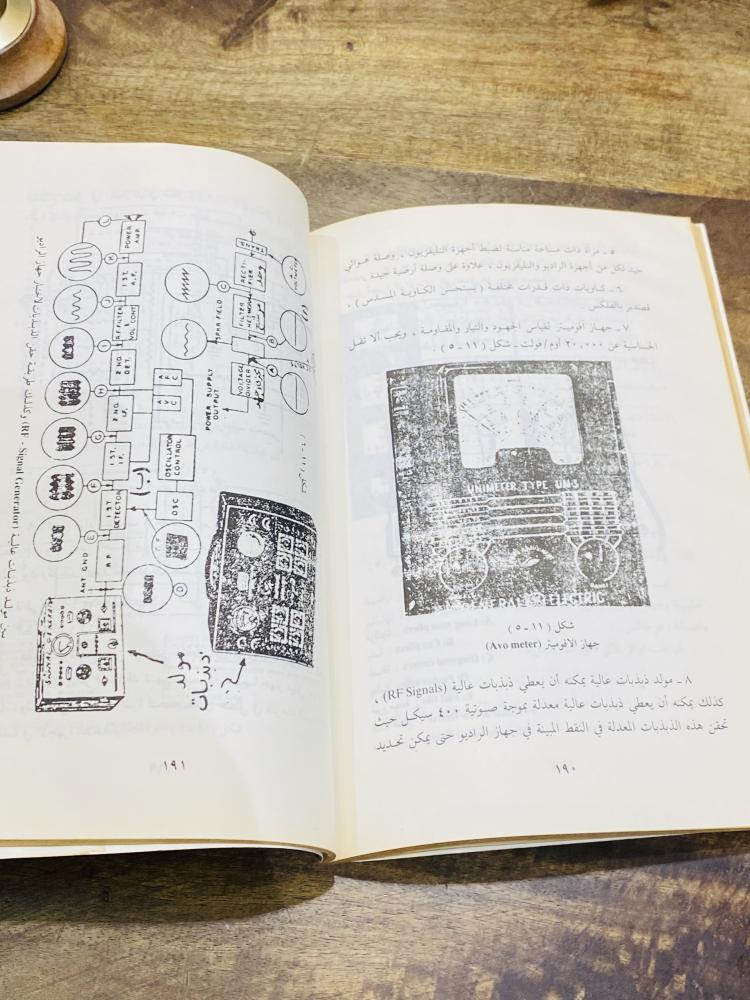 ٥ ـ مرآة ذات مساحة مناسبة لضبط أجهزة التليفزيون ، وصلة هوائي
جيد لكل من أجهزة الراديو والتليفزيون ، علاوة على وصلة أرضية جيدة
٦ ـ كاويات ذات قدرات مختلفة ( يستحسن الكاوية المسدس ) ،
قصدير بالفلكس
٧ ـ جهاز أفوميتر لقياس الجهود والتيار والمقاومة ، ويجب ألا تقل
الحساسية عن ٢٠,٠٠٠ أوم/فولت ـ شكل (١١ ـ ٥) .
UNIMETER TYPE UM-3
GENERAL ELECTRIC
شكل (١١ ـ ٥)
جهاز الافوميتر (Avo meter)
٨ ـ مولد ذبذبات عالية يمكنه أن يعطي ذبذبات عالية (RF Signals) ،
كذلك يمكنه أن يعطي ذبذبات عالية معدلة بموجة صوتية ٤٠٠ سيكل حيث
تحقن هذه الذبذبات المعدلة في النقط المبينة في جهاز الراديو حتى يمكن تحديد
١٩٠
(RF - Signal Generator) وكذلك طريقة حقن الذبذبات لاختبار جهاز الراديو
ANT GND
R.F
1ST. DETECTOR
1ST. I.F.
2 NO. I.F.
2 NO. DET.
R.F FILTER VOL CONT.
1ST. A.F.
POWER AMP.
D
E
F
G
H
I
J
K
L
(ب)
OSC
OSCILLATOR CONTROL
A V C
A F C
POWER SUPPLY OUTPUT
VOLTAGE DIVIDER
FILTER NETWORK
RECTI-FIER
SPKR FIELD
A
B
C
مولد
ذبذبات
١٩١